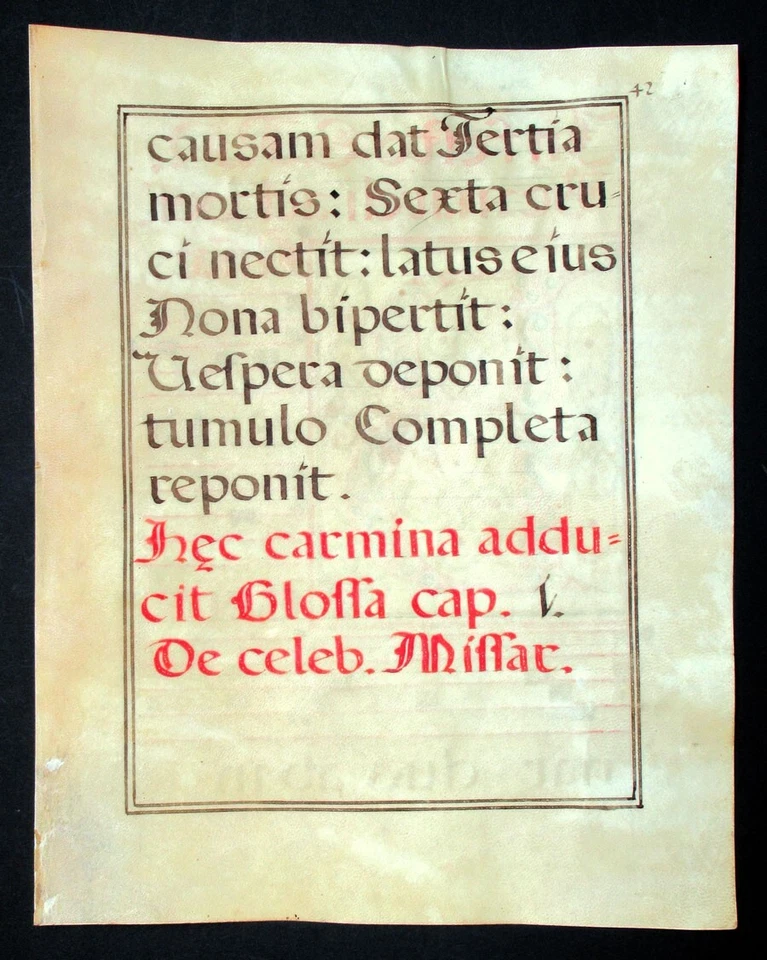 42
causam dat Tertia
mortis: Sexta cru=
ci nectit: latus eius
Nona bipertit:
Veſpera deponit:
tumulo Completa
reponit.
Hęc carmina addu=
cit Gloſſa cap. V.
De celeb. Miſſar.